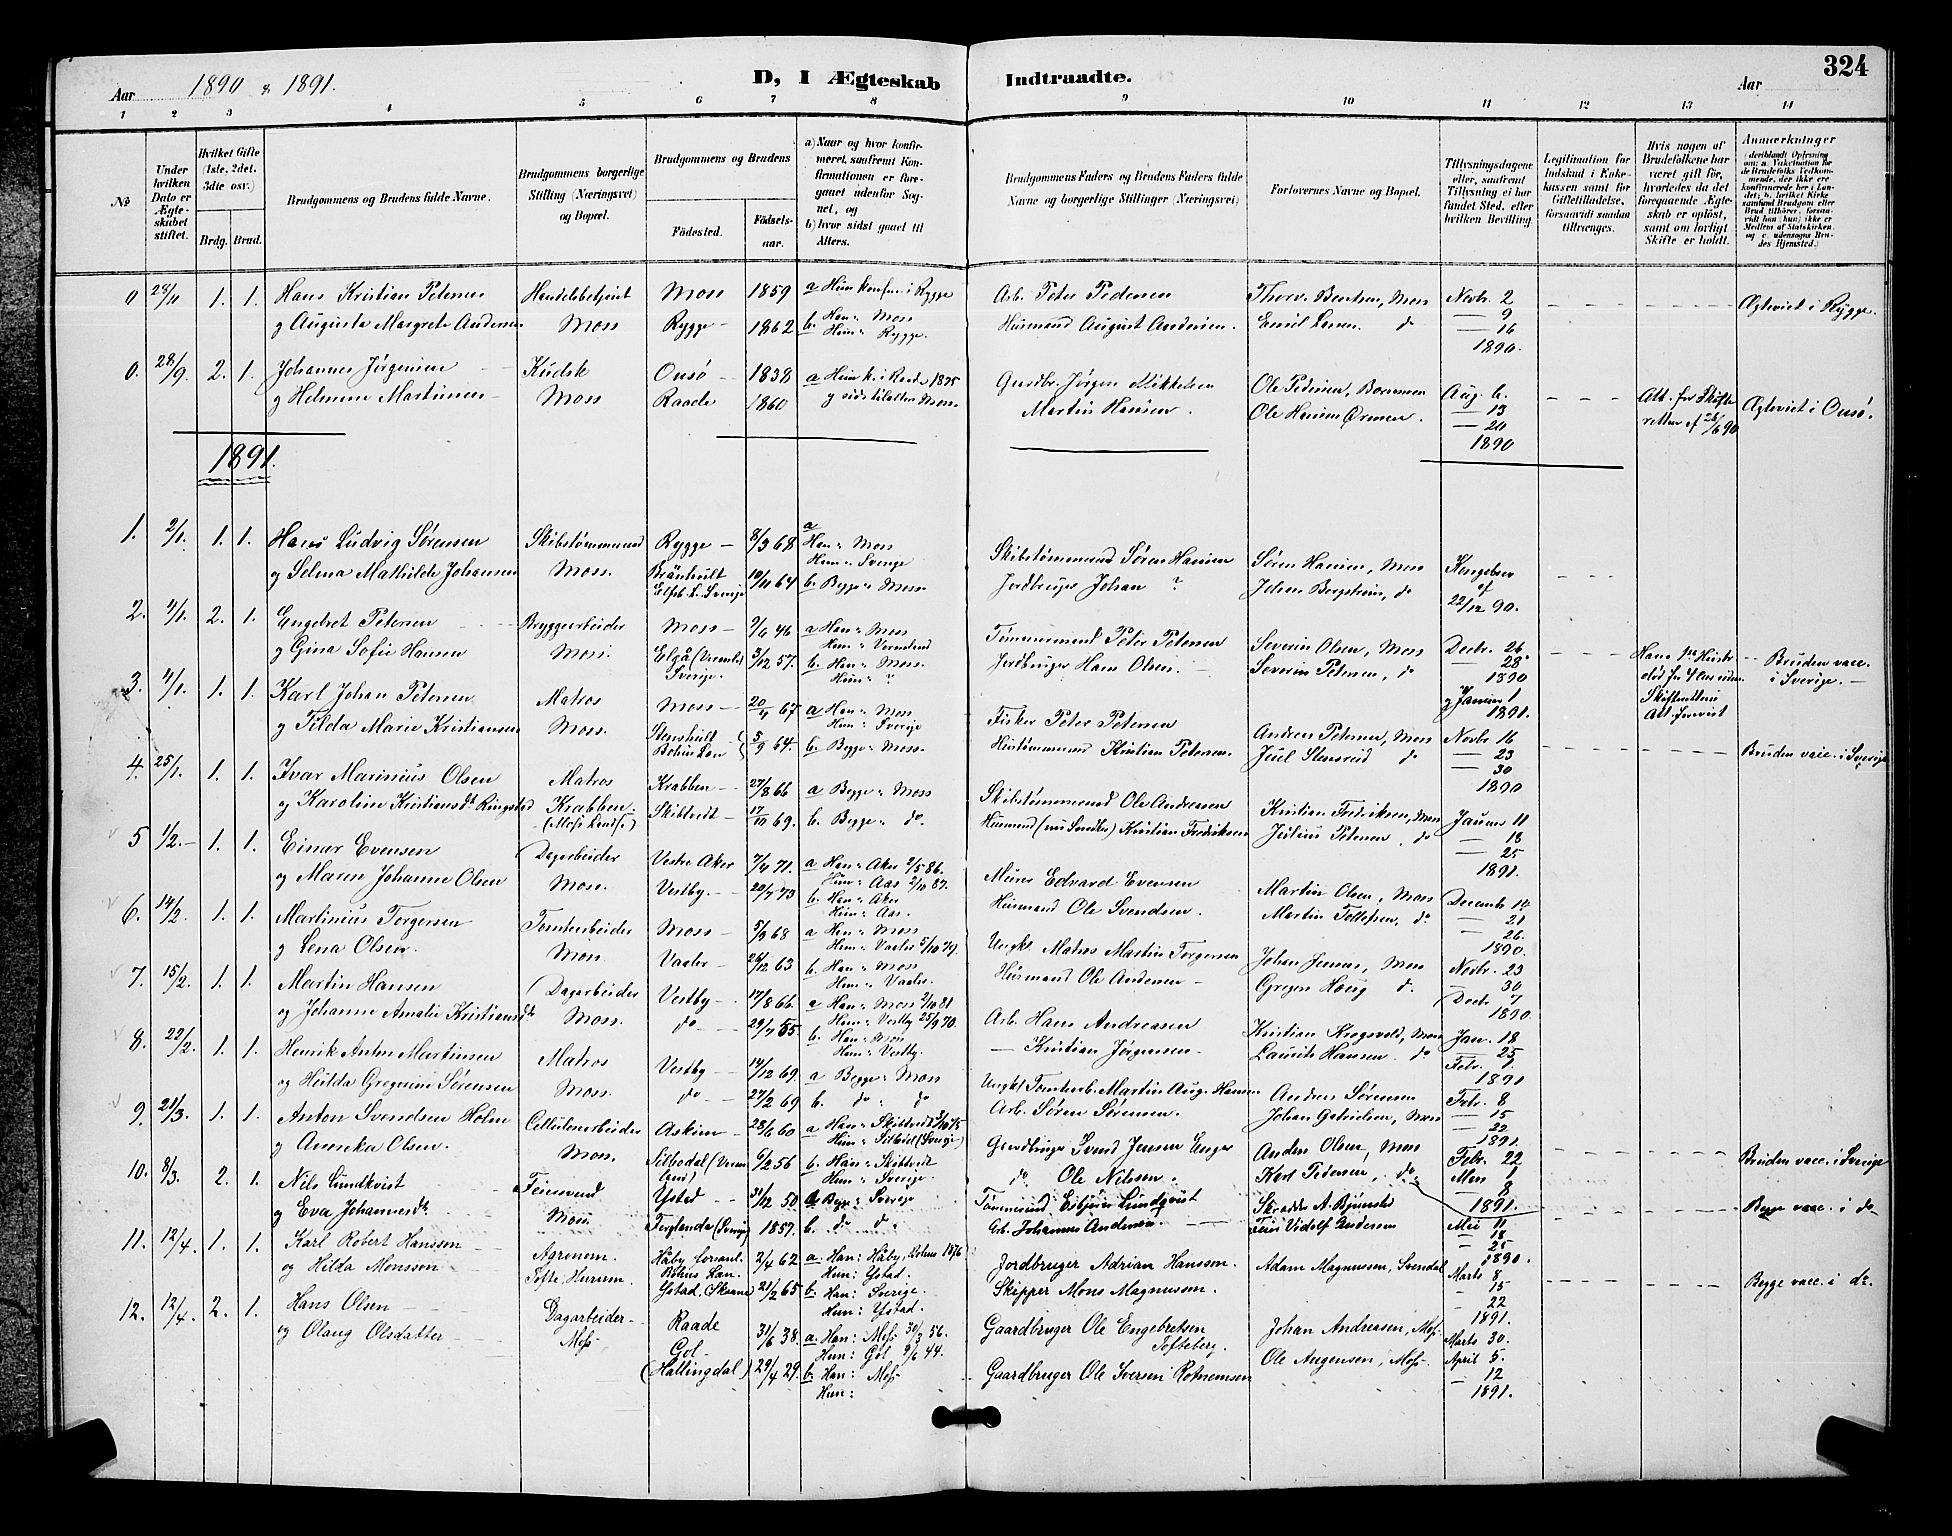 324
Aar 1890 & 1891.
D, I Ægteskab Indtraadte.
Aar
1 2 3 4 5 6 7 8 9 10 11 12 13 14
No
Under hvilken Dato er Ægteskabet stiftet.
Hvilket Gifte (1ste, 2det, 3die osv.)
Brdg. Brud.
Brudgommens og Brudens fulde Navne.
Brudgommens borgerlige Stilling (Næringsvei) og Bopæl.
Brudgommens og Brudens
Fødested. Fødsels-aar.
a) Naar og hvor konfirmeret, saafremt Konfirmationen er foregaaet udenfor Sognet, og
b) hvor sidst gaaet til Alters.
Brudgommens Faders og Brudens Faders fulde Navne og borgerlige Stillinger (Næringsvei)
Forlovernes Navne og Bopæl.
Tillysningsdagene eller, saafremt Tillysning ei har fundet Sted, efter hvilken Bevilling.
Legitimation for Indskud i Enkekassen samt for Giftetilladelse, forsaavidt saadan tiltrænges.
Hvis nogen af Brudefolkene har været gift før, hvorledes da det foregaaende Ægteskab er opløst, samt om lovligt Skifte er holdt.
Anmærkninger
0 28/11 1. 1. Hans Kristian Petersen Handelsbetjent Moss 1859 a Hun konfm. i Rygge Arb. Peter Pedersen Thorv. Bentsen, Moss Novbr. 2
g Augusta Margrete Andersen Moss Rygge 1862 b. Han " Moss Husmand August Andersen. Emil Larsen do 9 Ægteviet i Rygge.
Hun " Rygge. 16
1890.
0. 28/9 2. 1. Johannes Jørgensen Kudsk Onsø 1838 a Hun k. i Raade 1875 Gaardbr. Jørgen Mikkelsen Ole Pedersen, Aug. 6. Att. fra Skifte
g Helmine Martinsen Moss Raade 1860 g sidst til alters Moss. Martin Hansen. Ole Hansen 13 retten af 26/6 90 Ægteviet i Onsø.
20
1890
1891.
1. 2/1. 1. 1. Hans Ludvig Sørensen Skibstømmermand Rygge 8/3 68 a Han " Moss Skibstømmermand Søren Hansen Søren Hansen, Moss Kongebrev
Hun " Sverige af
g Selma Mathilde Johansen Moss. Bränhult Elfsb. L. Sverige 10/11 64 b. Begge " Moss. Jordbruger Johan ? Johan Bergstrøm, do 22/12 90.
2. 4/1. 2. 1. Engebret Petersen Bryggearbeider Moss 9/6 46 a Han " Moss Tømmermand Peter Petersen Severin Olsen, Moss Decbr. 26
Hun " Vermland 28
g Gina Sofie Hansen Moss. Elgå (Verml.) Sverige. 3/12 57. b. Han " Moss. Jordbruger Hans Olsen. Severin Petersen, do 1890 Hans 1ste Hustr Bruden vacc.
Hun " ? g Januar 1 død for 4 Aar siden. i Sverige.
1891.
3. 4/1. 1. 1. Karl Johan Petersen Matros Moss 20/4 67 a Han " Moss Fisker Peter Petersen Andreas Petersen, Moss Novbr. 16
Hun " Sverige
g Tilda Marie Kristiansen Moss. Stenshult Bohus Len 5/9 64. b. Begge " Moss. Kristian Petersen. Juul Stensrud do 23 Bruden vacc. i Sverige
30
1890
4. 25/1. 1. 1. Ivar Marinius Olsen Matros Krabben 27/8 66 a Begge " Moss Skibstømmermand Ole Andreasen Kristian Fredriksen, Moss Januar 11
og Karoline Kristiansdt. Ringstad Krabben. (Moss Landsf.) Skibtvedt 17/11 69. b. Begge " do. Husmand (nu Snedker) Kristian Fredriksen Julius Petersen, do 18
25
1891.
5 1/2. 1. 1. Einar Evensen Dagarbeider Vestre Aker 7/4 71. a Han " Aker 2/5 86. Murer Edvard Evensen Martin Olsen, Moss Decembr 14
Hun " Aas 2/10 87.
og Maren Johanne Olsen Moss. Vestby. 20/7 73 b. Han " Aker Husmand Ole Svendsen. Martin Tollefsen, do 21
Hun " Aas. 26.
1890.
6. 14/2. 1. 1. Martinius Torgersen Tomtearbeider Moss 5/9 68 a Han " Moss Ungkl. Matros Martin Torgersen Johan Jensen, Moss Novbr. 23
Hun " Vaaler 5/10 79.
g Lena Olsen. Moss. Vaaler 26/12 63 b. Han " Moss Husmand Ole Andersen Gregers Hauig do. 30
Hun " Vaaler. Decbr 7
1890
7. 15/2. 1. 1. Martin Hansen Dagarbeider Vestby 17/8 66. a Han " Moss 2/10 81 Arb. Hans Andreasen Kristian Krogsvold, Moss Jan. 18
Hun " Vestby 25/9 70.
og Johanne Amalie Kristiansdt. Moss. do 29/7 55 b. Han " Moss Kristian Jørgensen Laurits Hansen. do 25
Hun " Vestby. Febr. 1.
1891
8. 22/2. 1. 1. Henrik Anton Martinsen Matros Vestby 14/12 69. a Begge " Moss Ungkl Tomtearb. Martin Aug. Hansen Anders Sørensen Febr. 8
og Hulda Gregusine Sørensen Moss. do 27/2 69 b. do " do Arb. Søren Sørensen. Johan Gabrielsen, Moss 15
22
1891.
9. 21/3. 1. 1. Anton Svendsen Holm Cellulosearbeider Askim 28/6 60 a Han " Skibtvedt 3/10 75 Gaardbruger Svend Jensen Enger Anders Olsen, Moss Febr. 22
Hun " Silbodal (Sverige)
g Annika Olsen. Moss. Silbodal (Vermland) 6/2 56 b. Han " Skibtvedt do. Ole Nilssen. Karl Pedersen, do. Mars 1 Bruden vacc. i Sverige
Hun " Sverige. 8
1891.
10. 8/3. 2. 1. Nils Lundkvist Feiersvend Ystad 31/12 50 a Begge " Sverige Tømmermand Esbjørn Lundqvist Skrædder A. Bjørnstad
g Eva Johannesdt. Moss Ferglanda (Sverige) 1857. b. do " do " Gb. Johannes Andersen. Feier Vidolf Andersen Mai 11 Begge vacc. i do
18
25
1890.
11. 12/4. 1. 1. Karl Robert Hansson Agronom. Håby, Bohus Län. 2/4 62 a. Han: Håby, Bohus 1876 Jordbruger Adrian Hansson. Adam Magnussen, Svendal Marts 8
Hun: Ystad.
og Hilda Monsson Tofte, Hurum. Ystad, Skåne 21/2 65 b. Han: Sverige. Skipper Mons Magnusson. 15 Begge vacc. i do.
Hun: Ystad. 22
1891.
12. 12/4. 2. 1. Hans Olsen Dagarbeider Raade 31/6 38. a. Han: Moss 30/3 56. Gaardbruger Ole Engebretsen Tofteberg. Johan Andreasen, Moss Marts 30.
Hun: Gol 9/6 44.
og Olaug Olsdatter Moss Gol (Hallingdal) 29/4 29. b. Han: Moss Gaardbruger Ole Iversen Rotnemsen Ole Augensen, Moss. April 5.
Hun: 12
1891.